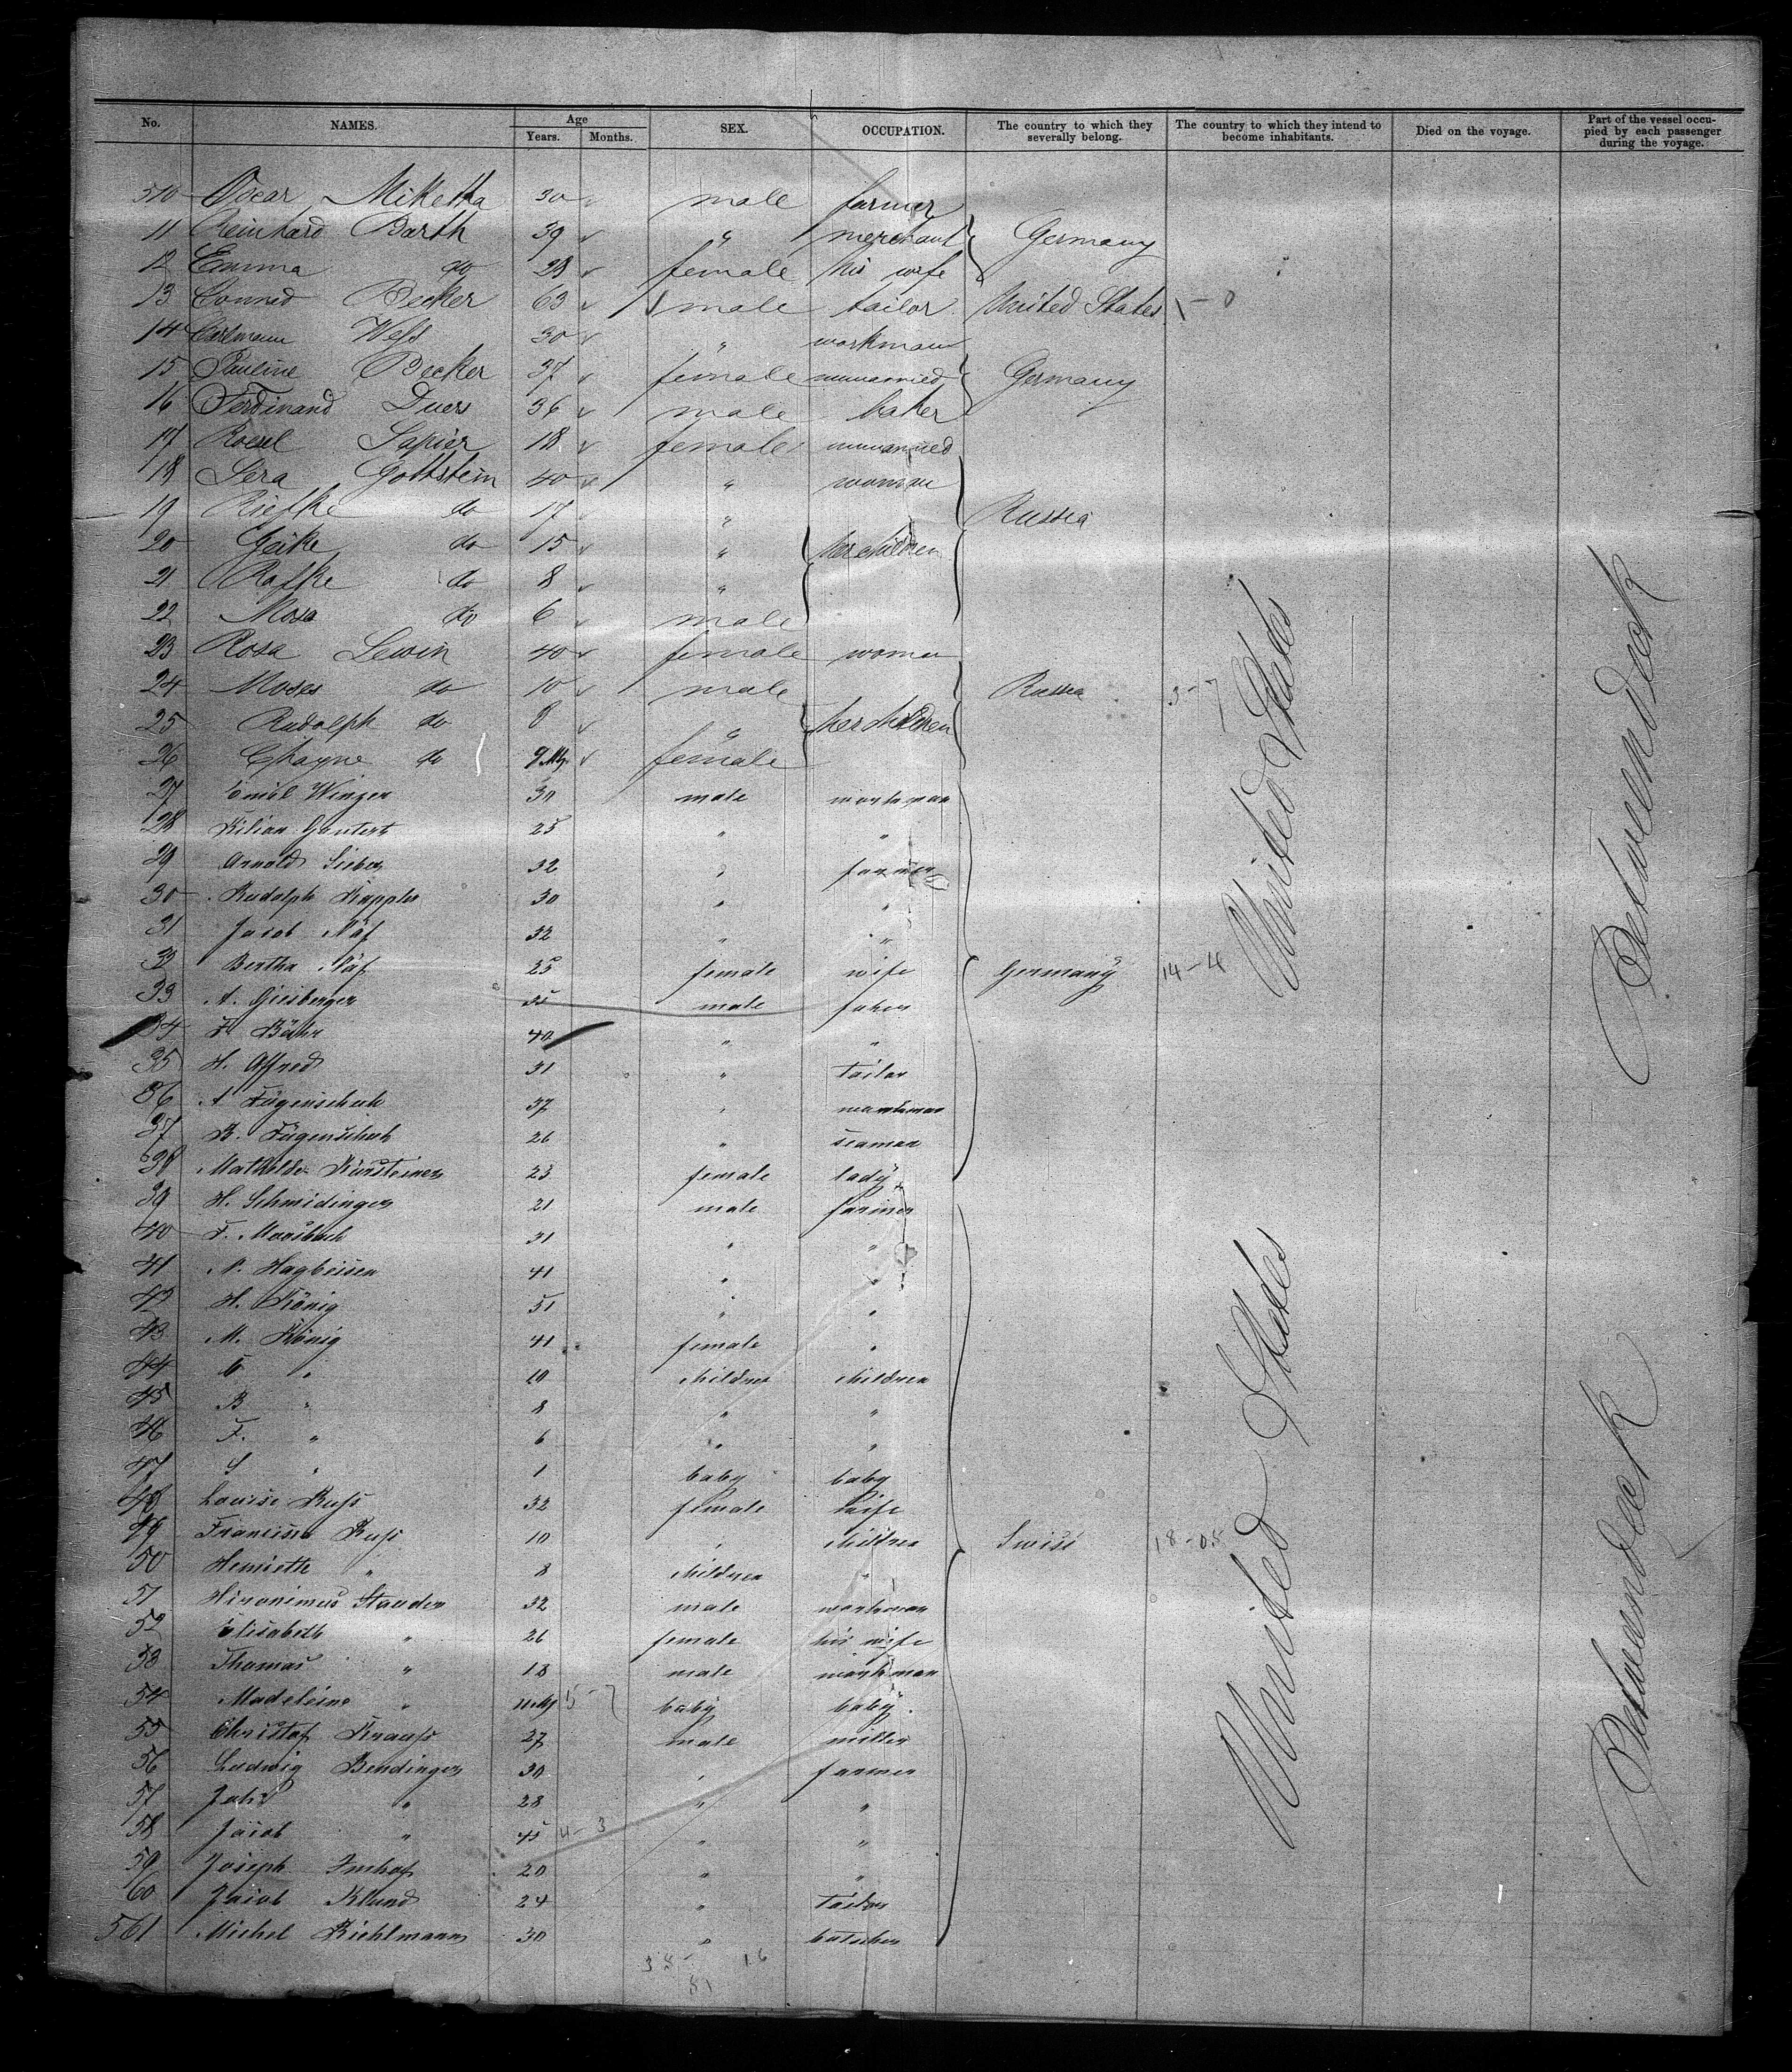 No. NAMES. Age Years. Months. SEX. OCCUPATION. The country to which they severally belong. The country to which they intend to become inhabitants. Died on the voyage. Part of the vessel occupied by each passenger during the voyage.
510 Oscar Miketta 30 male farmer
11 Reinhard Barth 39 " merchant Germany
12 Emma do 28 female his wife
13 Conrad Becker 63 male tailor United States 1-0
14 Wess 30 " workman
15 Pauline Becker 37 female unmarried Germany
16 Ferdinand Duers 36 male baker
17 Roesel Sapier 18 female unmarried
18 Sera Gottstein 40 " woman
19 Riefke do 17 " Russia
20 Geike do 15 " her children
21 Rafke do 8 "
22 Mosa do 6 male
23 Rosa Lewin 40 female woman
24 Moses do 10 male Russia 3-7
25 Rudolph do 8 " her children
26 Chayne do 9 M. female
27 Emil Winzer 30 male workman
28 Kilian Gantert 25 " "
29 Arnold Sieber 32 " farmer
30 Rudolph Kappler 30 " "
31 Jacob Näf 32 " "
32 Bertha Näf 25 female wife Germany 14-4
33 A. Giesberger 35 male
34 F. Bähr 40 " "
35 H. Alfred 31 " tailor
36 A Fügenschuh 37 " workman
37 B. Fügenschuh 26 " seaman
38 Mathilde Kürsteiner 23 female lady
39 H. Schmidinger 21 male farmer
40 F. Moosbach 31 " "
41 N. Hagbeisen 41 " "
42 H. König 51 " "
43 M. König 41 female "
44 " 10 children children
45 B " 8 " "
46 F. " 6 " "
47 S " 1 baby baby
48 Louise Russ 32 female wife
49 Francisca Russ 10 " children Swiss 18-05
50 Henriette " 8 children "
51 Hironimus Stauder 32 male workman
52 Elisabeth " 26 female his wife
53 Thomas " 18 male workman
54 Madeleine " 11 M 5-7 baby baby
55 Christof Krauss 27 male miller
56 Ludwig Bendinger 30 " farmer
57 " 28 " "
58 Jacob " 45 4-3 " "
59 Joseph Imhof 20 " "
60 Jacob Klund 24 " tailor
561 Michel Riehlmann 30 " butscher
United States
United States
Betweendeck
Betweendeck
38- 16
81